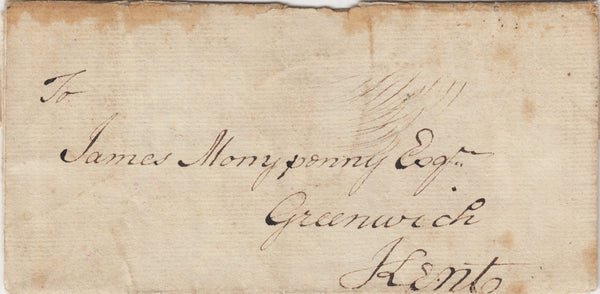 To
James Monypenny Esqr.
Greenwich
Kent